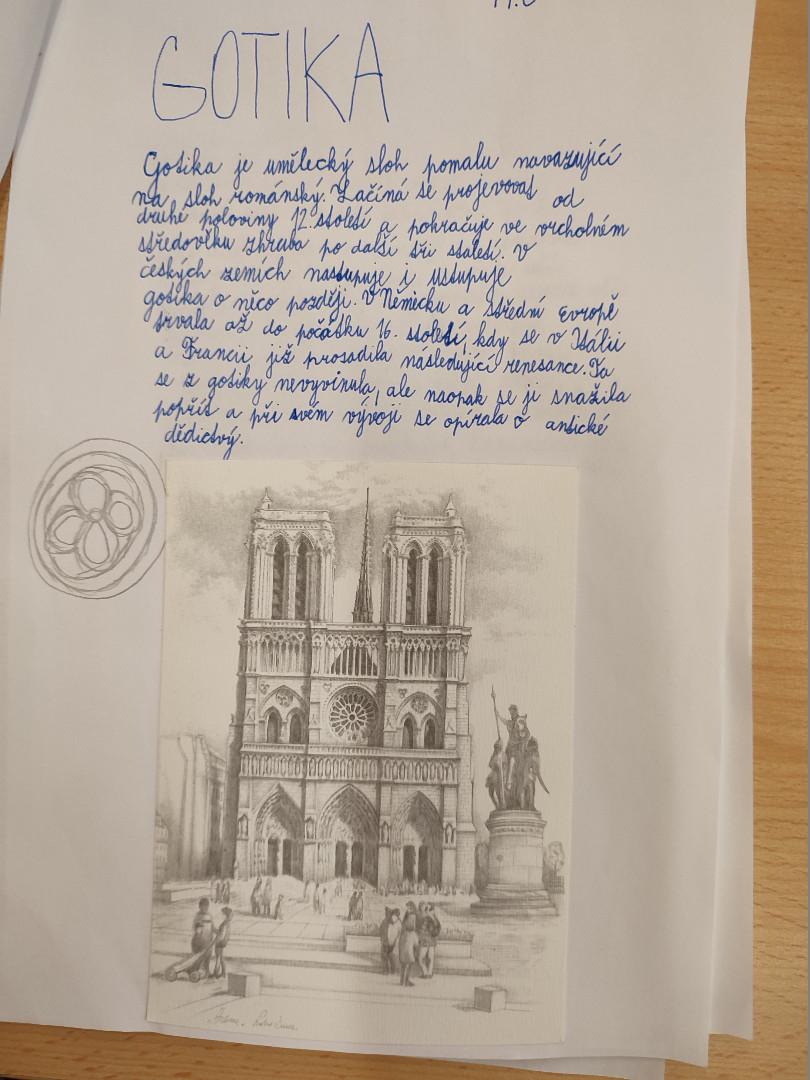 GOTIKA
Gotika je umělecký sloh pomalu navazující
na sloh románský. Začíná se projevovat od
druhé poloviny 12. století a pokračuje ve vrcholném
středověku zhruba po další tři staletí. V
českých zemích nastupuje i ustupuje
gotika o něco později. V Německu a střední Evropě
trvala až do počátku 16. století, kdy se v Itálii
a Francii již prosadila následující renesance. Ta
se z gotiky nevyvinula, ale naopak se ji snažila
popřít a při svém vývoji se opírala o antické
dědictví.